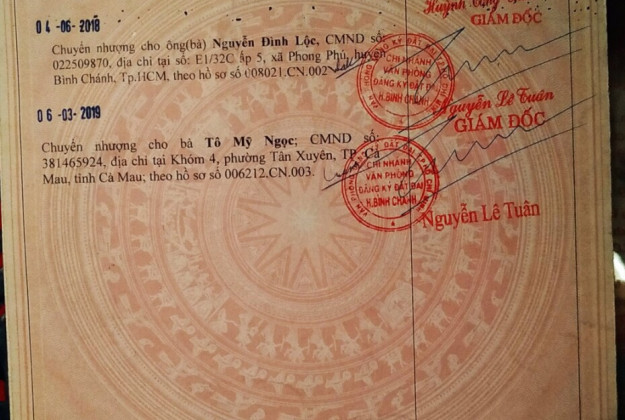 04 -06- 2018
Huỳnh
GIÁM ĐỐC
Chuyển nhượng cho ông(bà) Nguyễn Đình Lộc, CMND số:
022509870, địa chỉ tại số: E1/32C ấp 5, xã Phong Phú, huyện
Bình Chánh, Tp.HCM, theo hồ sơ số 008021.CN.002
CHI NHÁNH
VĂN PHÒNG
ĐĂNG KÝ ĐẤT ĐAI
H.BÌNH CHÁNH
Nguyễn Lê Tuân
GIÁM ĐỐC
06 -03- 2019
Chuyển nhượng cho bà Tô Mỹ Ngọc; CMND số:
381465924, địa chỉ tại Khóm 4, phường Tân Xuyên, TP. Cà
Mau, tỉnh Cà Mau; theo hồ sơ số 006212.CN.003.
CHI NHÁNH
VĂN PHÒNG
ĐĂNG KÝ ĐẤT ĐAI
H.BÌNH CHÁNH
Nguyễn Lê Tuân